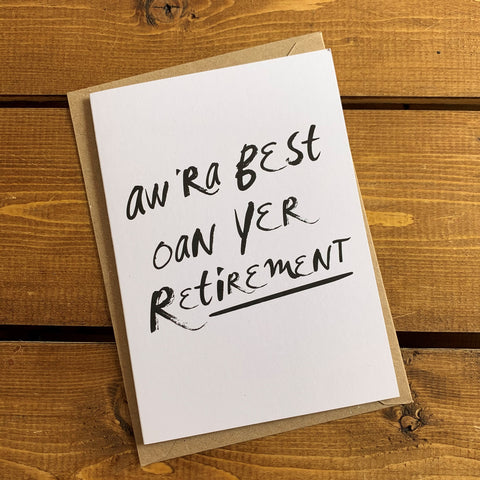 aw'Ra BEst
oaN YER
REtiREMENT